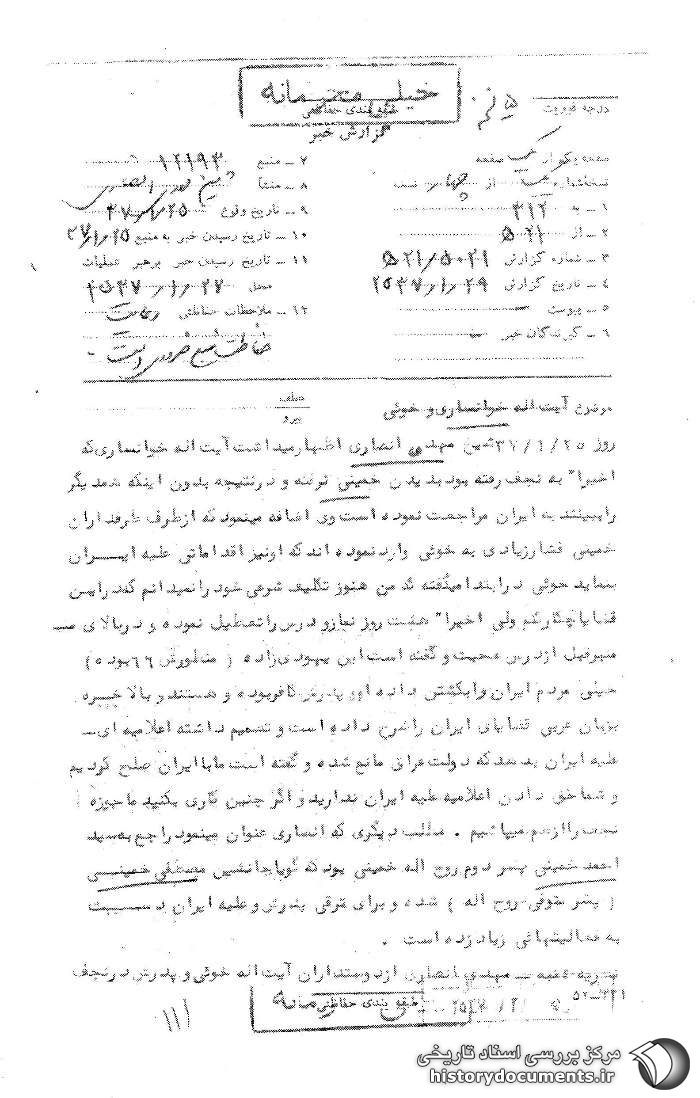 خیلی محرمانه
طبقه بندی حفاظتی
گزارش خبر
درجه فوریت
صفحه یک از یک صفحه
نسخه شماره یک از چهار نسخه
۱ ـ به ۳۱۲
۲ ـ از ۵۲۱
۳ ـ شماره گزارش ۵۲۱/۵۰۲۱
۴ ـ تاریخ گزارش ۲۵۳۷/۱/۲۹
۵ ـ پیوست ـ
۶ ـ گیرندگان خبر ـ
۷ ـ منبع ۱۲۱۹۳
۸ ـ منشأ شیخ مهدی انصاری
۹ ـ تاریخ وقوع ۳۷/۱/۲۵
۱۰ ـ تاریخ رسیدن خبر به منبع ۳۷/۱/۲۵
۱۱ ـ تاریخ رسیدن خبر برهبر عملیات
محل ۲۵۳۷/۱/۲۷
۱۲ ـ ملاحظات حفاظتی رعایت
حفاظت منبع ضروری است ـ
موضوع آیت اله خوانساری و خوئی
عطف
پیرو
روز ۳۷/۱/۲۵ شیخ مهدی انصاری اظهار میداشت آیت اله خوانساری که
اخیرا" به نجف رفته بود بدیدن خمینی نرفته و در نتیجه بدون اینکه همدیگر
را ببینند به ایران مراجعت نموده است وی اضافه مینمود که از طرف طرفداران
خمینی فشار زیادی به خوئی وارد نموده اند که او نیز اقداماتی علیه ایران
بنماید خوئی در ابتدا میگفته که من هنوز تکلیف شرعی خود را نمیدانم که در این
قضایا چکار کنم ولی اخیرا" هشت روز نماز و درس را تعطیل نموده و در بالای ـ
منبر قبل از درس صحبت و گفته است این یهودی زاده ( منظورش ۶۶ بوده )
خیلی مردم ایران را بکشتن داده او و پدرش کافر بوده و هستند و بالاخره
بزبان عربی قضایای ایران را شرح داده است و تصمیم داشته اعلامیه ای ـ
علیه ایران بدهد که دولت عراق مانع شده و گفته است ما با ایران صلح کردیم
و شما حق دادن اعلامیه علیه ایران ندارید و اگر چنین کاری بکنید ما حوزه
نجف را از هم میپاشیم . مطالب دیگری که انصاری عنوان مینمود راجع به سید
احمد خمینی پسر دوم روح اله خمینی بود که گویا جانشین مصطفی خمینی
( پسر متوفی روح اله ) شده و برای ترقی پدرش و علیه ایران دست
به فعالیتهائی زیاد زده است .
نظریه شنبه ـ مهدی انصاری از دوستداران آیت اله خوئی و پدرش در نجف
۵۲-۳۳۱
طبقه بندی حفاظتی
مرکز بررسی اسناد تاریخی
historydocuments.ir